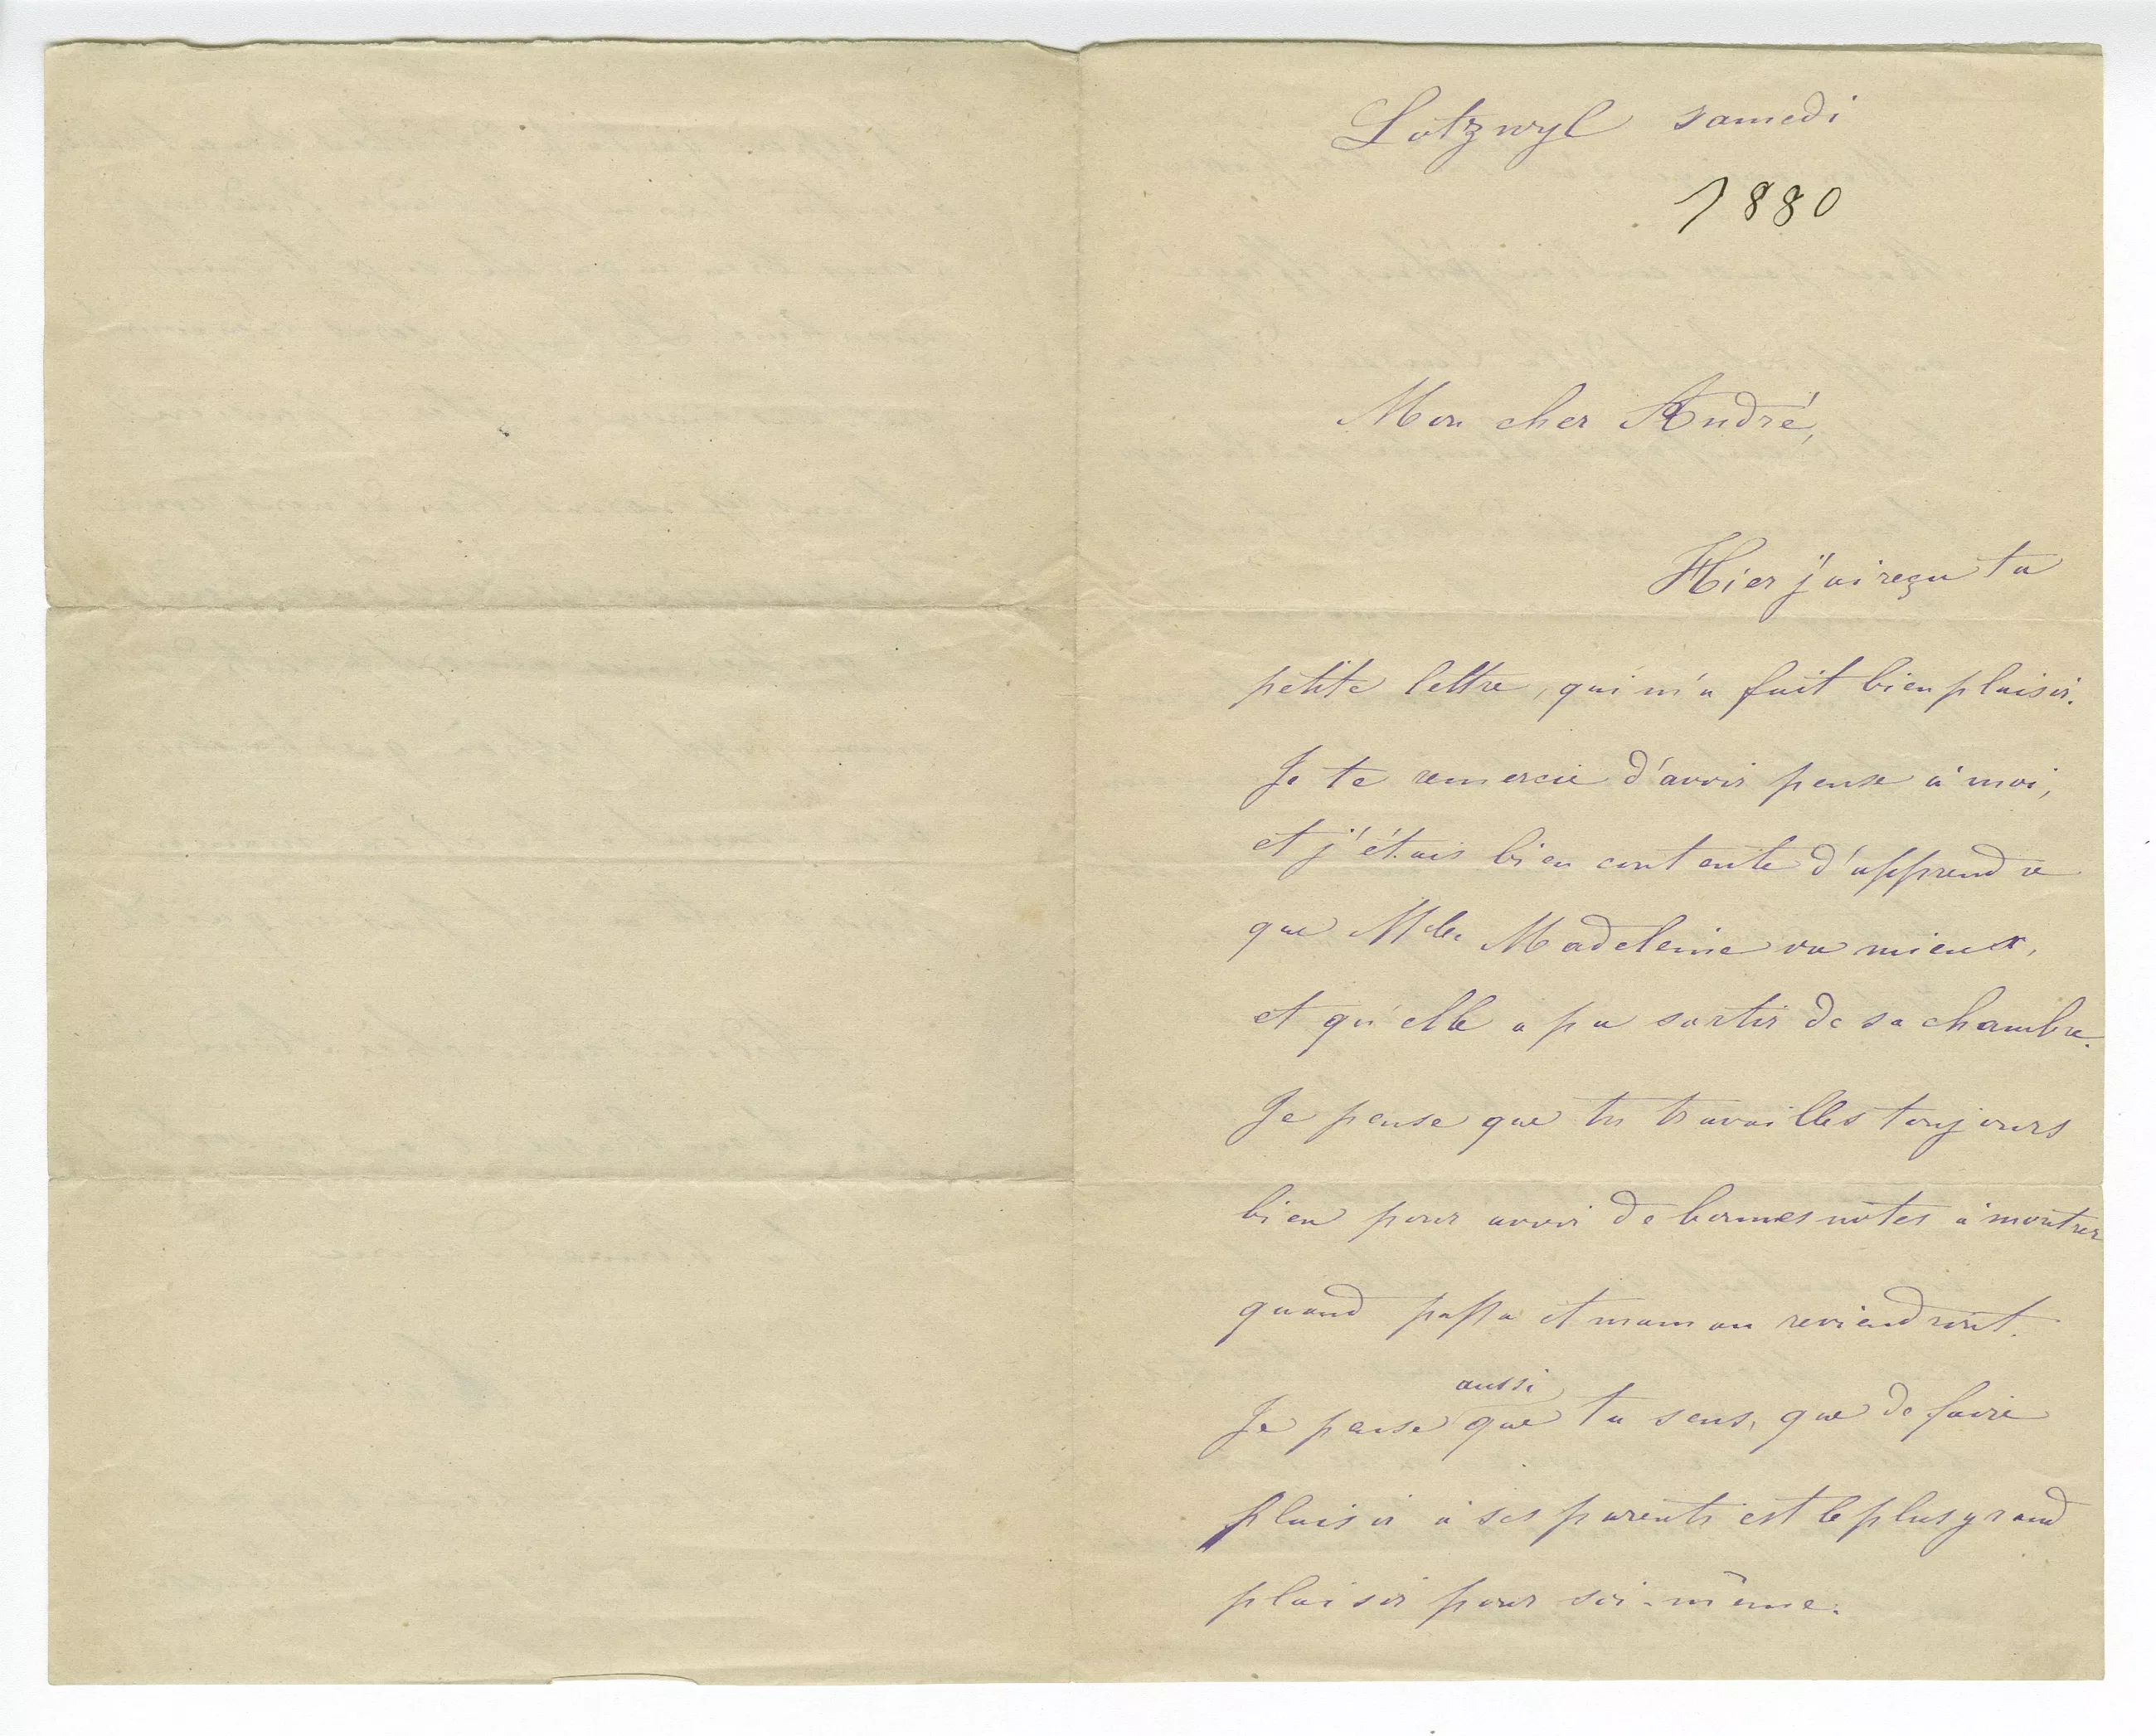 Lotzwyl samedi
1880
Mon cher André,
Hier j'ai reçu ta
petite lettre, qui m'a fait bien plaisir.
Je te remercie d'avoir pensé à moi,
et j'étais bien contente d'apprendre
que Mlle Madeleine va mieux,
et qu'elle a pu sortir de sa chambre.
Je pense que tu travailles toujours
bien pour avoir de bonnes notes à montrer
quand papa et maman reviendront.
aussi
Je pense que tu sens, que de faire
plaisir à ses parents est le plus grand
plaisir pour soi-même.